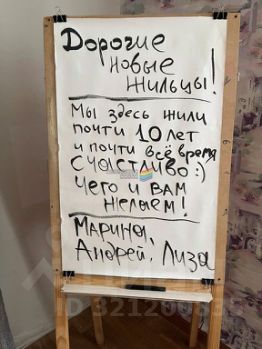 Дорогие
новые
жильцы!
Мы здесь жили
почти 10 лет
и почти всё время
счастливо :)
Чего и вам
желаем!
Марина,
Андрей, Лиза